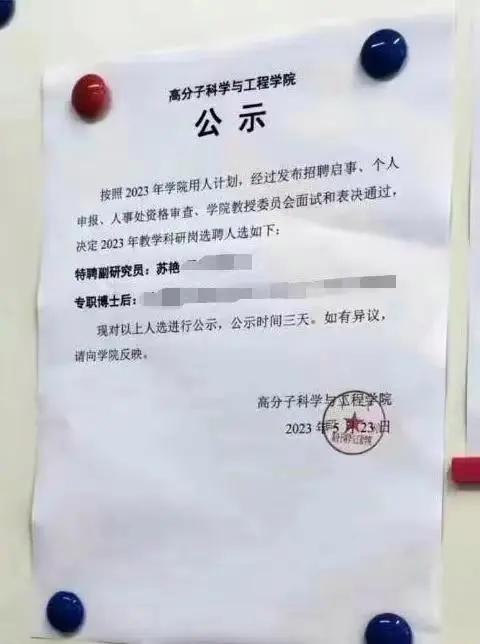 高分子科学与工程学院
公示
按照 2023 年学院用人计划，经过发布招聘启事、个人
申报、人事处资格审查、学院教授委员会面试和表决通过，
决定 2023 年教学科研岗选聘人选如下：
特聘副研究员：苏艳
专职博士后：
现对以上人选进行公示，公示时间三天。如有异议，
请向学院反映。
高分子科学与工程学院
2023 年 5 月 23 日